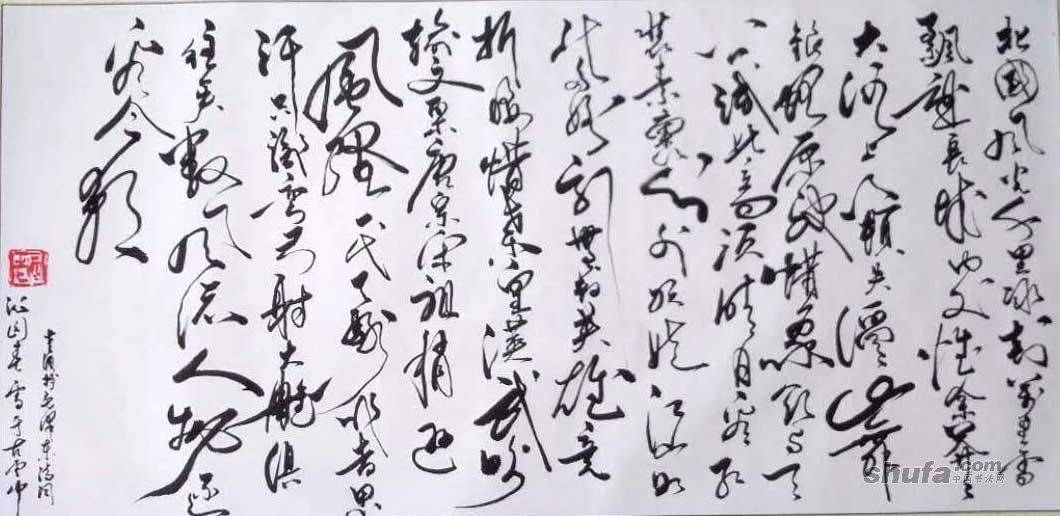 北國風光千里冰封萬里雪
飄望長城内外惟余莽莽
大河上下頓失滔滔山舞
銀蛇原馳蠟象欲与天
公試比高須晴日看紅
裝素裹分外妖娆江山如
此多娇引無數英雄竞
折腰惜秦皇漢武略
輸文采唐宗宋祖稍逊
風騷一代天骄成吉思
汗只識弯弓射大雕俱
往矣數風流人物还
看今朝
毛澤東詩詞
沁园春雪于古雲中
shufa.com
中国书法网